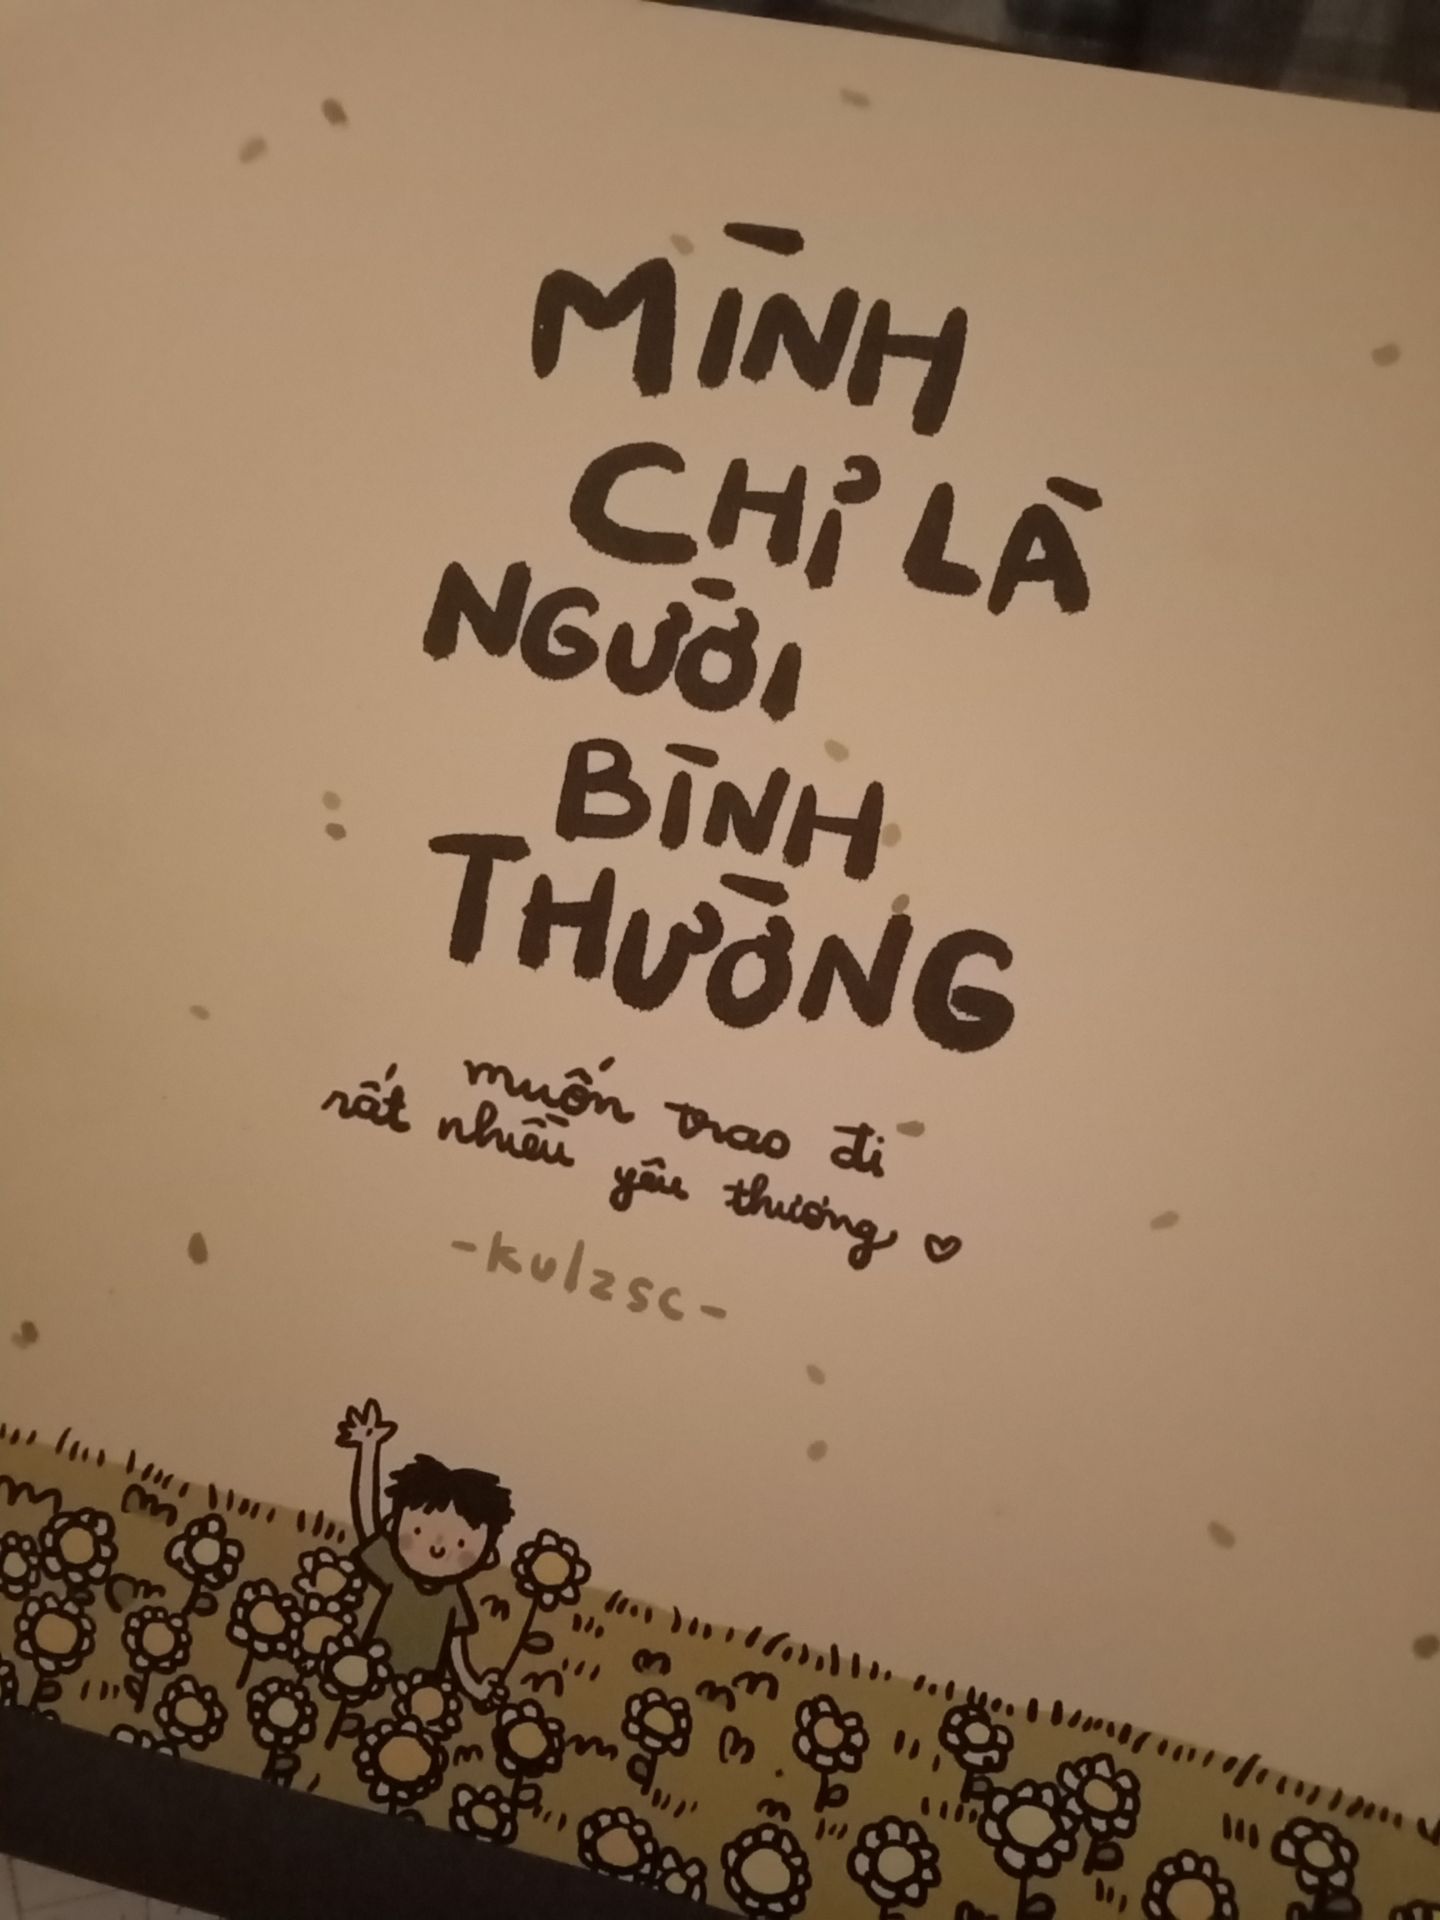 MÌNH
CHỈ LÀ
NGƯỜI
BÌNH
THƯỜNG
muốn trao đi
rất nhiều yêu thương ♡
-kulzsc-